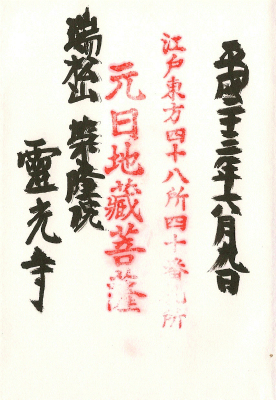 平成二十三年六月九日
江戸東方四十八所四十番札所
元日地藏菩薩
瑞松山 榮隆院
靈光寺